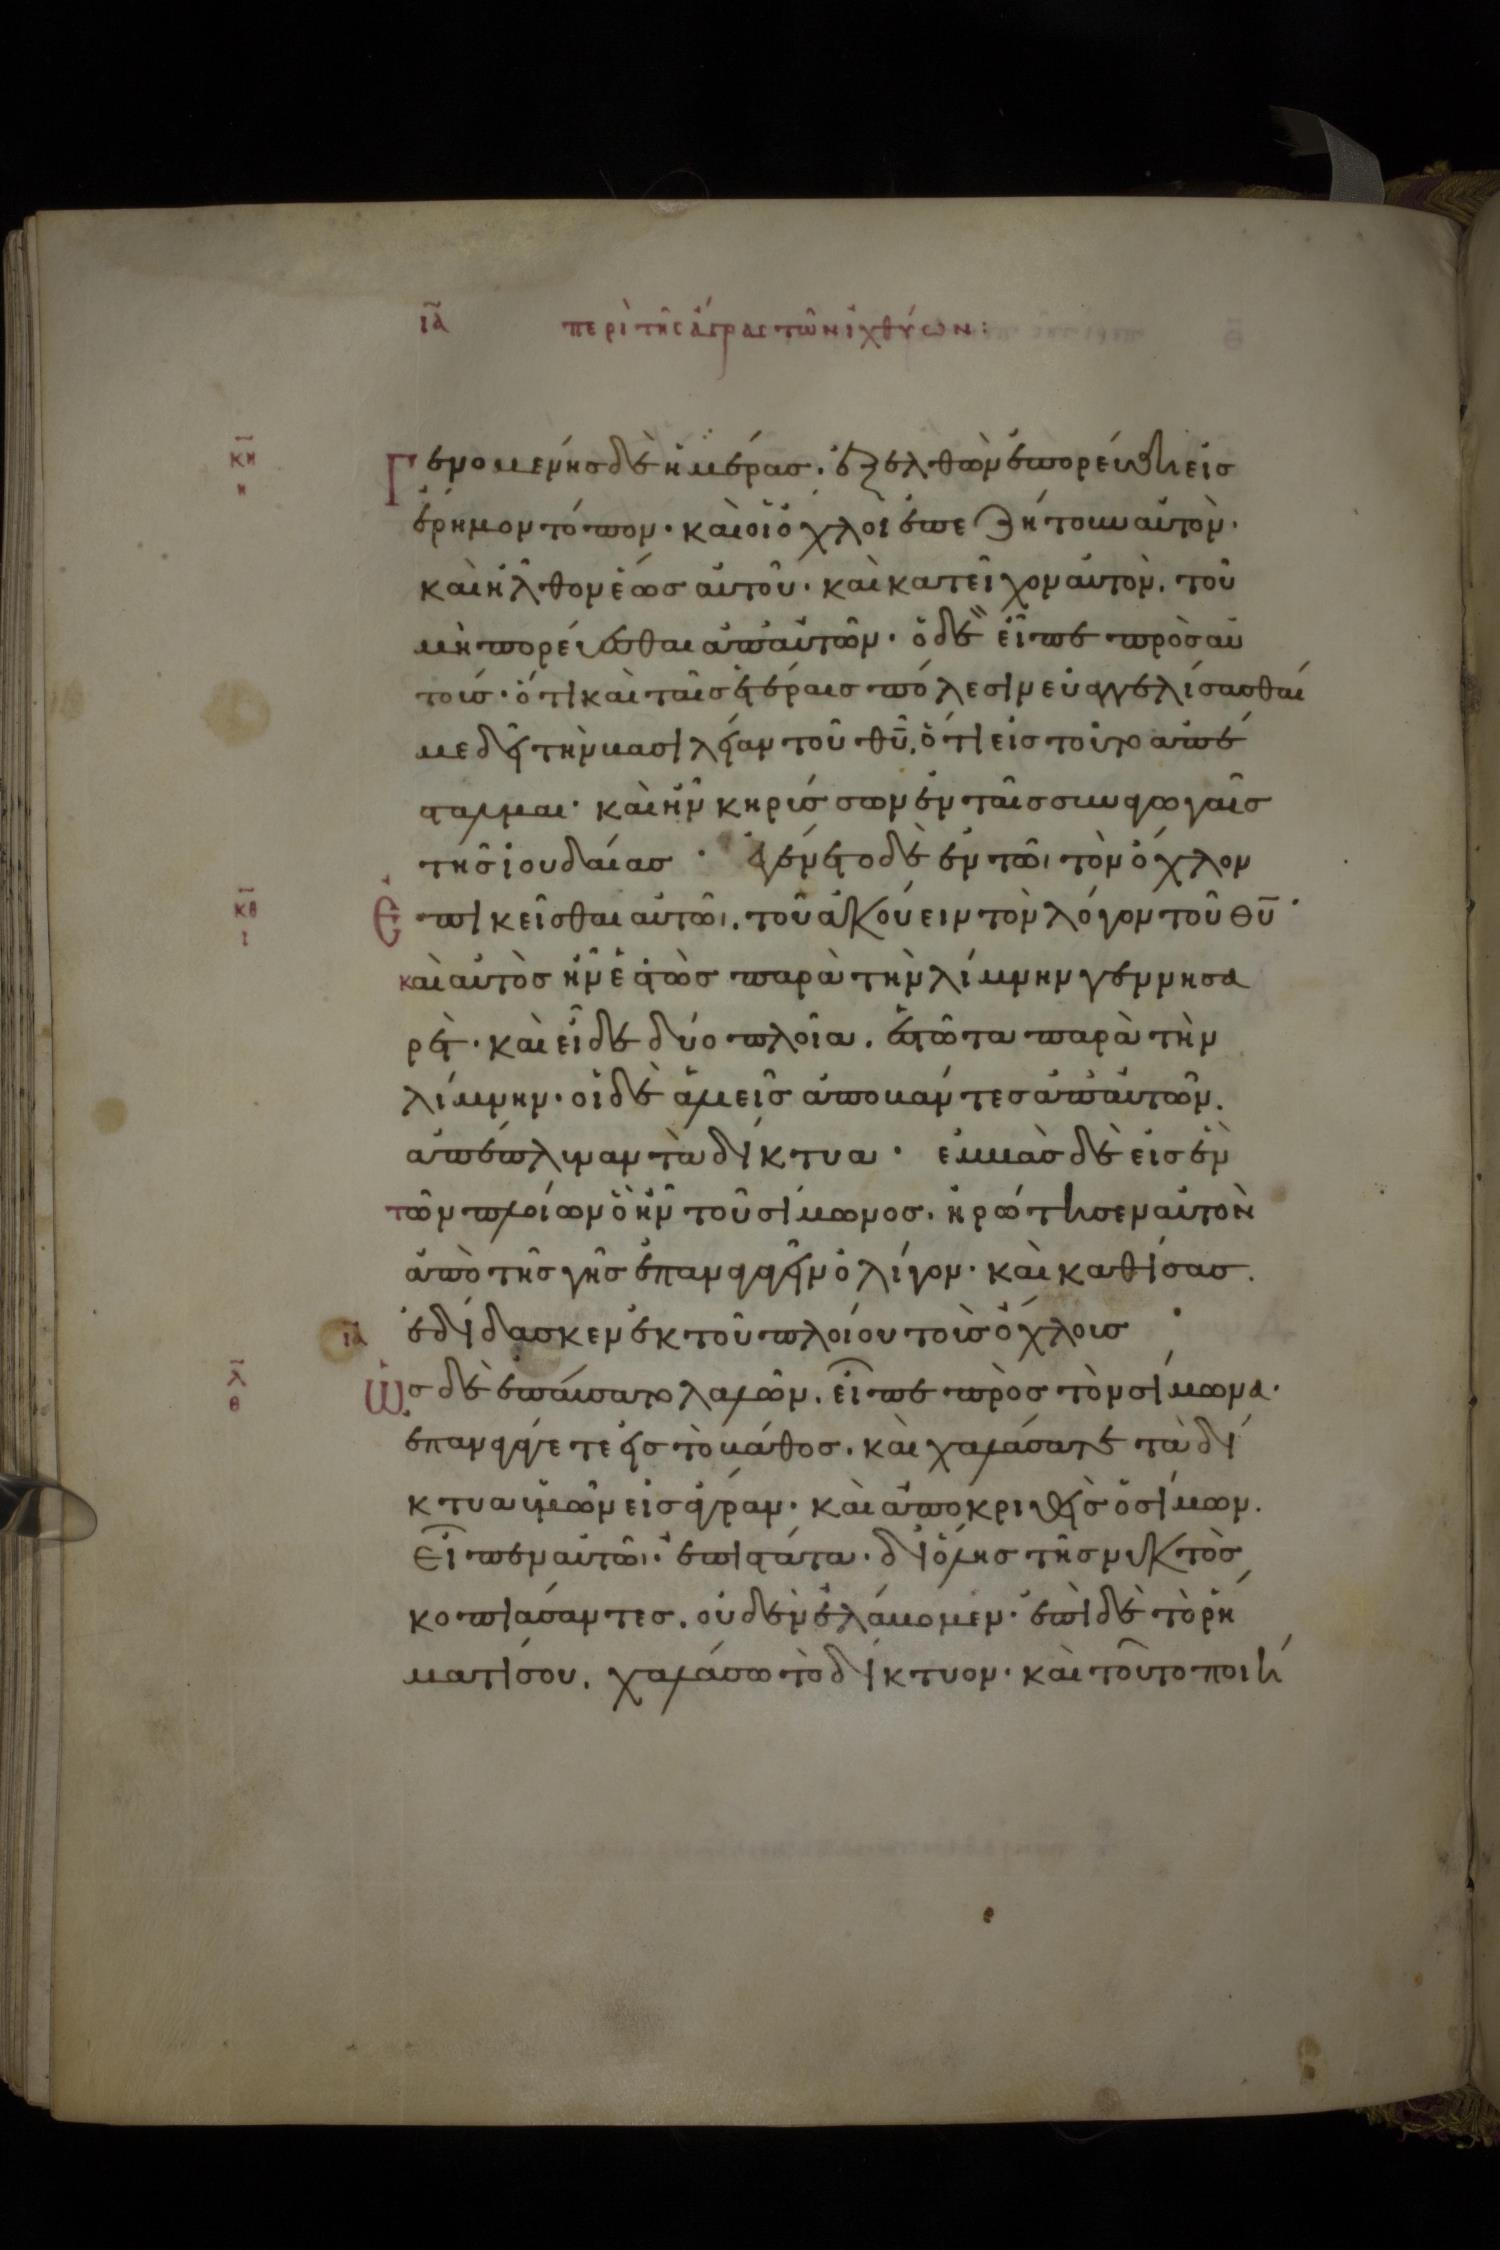 ια περὶ τῆς ἄγρας τῶν ἰχθύων:
κη
η
Γενομένης δὲ ἡμέρας. ἐξελθὼν ἐπορεύθη εἰς
ἔρημον τόπον. καὶ οἱ ὄχλοι ἐπεζήτουν αὐτὸν.
καὶ ἦλθον ἕως αὐτοῦ. καὶ κατεῖχον αὐτὸν. τοῦ
μὴ πορεύεσθαι ἀπ' αὐτῶν. ὁ δὲ εἶπε πρὸς αὐ
τούς. ὅτι καὶ ταῖς ἑτέραις πόλεσιν εὐαγγελίσασθαί
με δεῖ τὴν βασιλείαν τοῦ θῦ. ὅτι εἰς τοῦτο ἀπέ
σταλμαι. καὶ ἦν κηρύσσων ἐν ταῖς συναγωγαῖς
τῆς ἰουδαίας. ἐγένετο δὲ ἐν τῶι τὸν ὄχλον
κθ
ι
Ἐπικεῖσθαι αὐτῶι. τοῦ ἀκούειν τὸν λόγον τοῦ θῦ.
καὶ αὐτὸς ἦν ἑστὼς παρὰ τὴν λίμνην γεννησα
ρέτ. καὶ εἶδε δύο πλοῖα. ἑστῶτα παρὰ τὴν
λίμνην. οἱ δὲ ἁλιεῖς ἀποβάντες ἀπ' αὐτῶν.
ἀπέπλυναν τὰ δίκτυα. ἐμβὰς δὲ εἰς ἓν
τῶν πλοίων ὃ ἦν τοῦ σίμωνος. ἠρώτησεν αὐτὸν
ἀπὸ τῆς γῆς ἐπαναγαγεῖν ὀλίγον. καὶ καθίσας.
ια ἐδίδασκεν ἐκ τοῦ πλοίου τοὺς ὄχλους.
λ
θ
Ὡς δὲ ἐπαύσατο λαλῶν. εἶπε πρὸς τὸν σίμωνα.
ἐπανάγαγετε εἰς τὸ βάθος. καὶ χαλάσατε τὰ δί
κτυα ὑμῶν εἰς ἄγραν. καὶ ἀποκριθεὶς ὁ σίμων.
εἶπεν αὐτῶι. ἐπιστάτα. δι' ὅλης τῆς νυκτὸς
κοπιάσαντες. οὐδὲν ἐλάβομεν. ἐπὶ δὲ τὸ ῥή
ματί σου. χαλάσω τὸ δίκτυον. καὶ τοῦτο ποιή